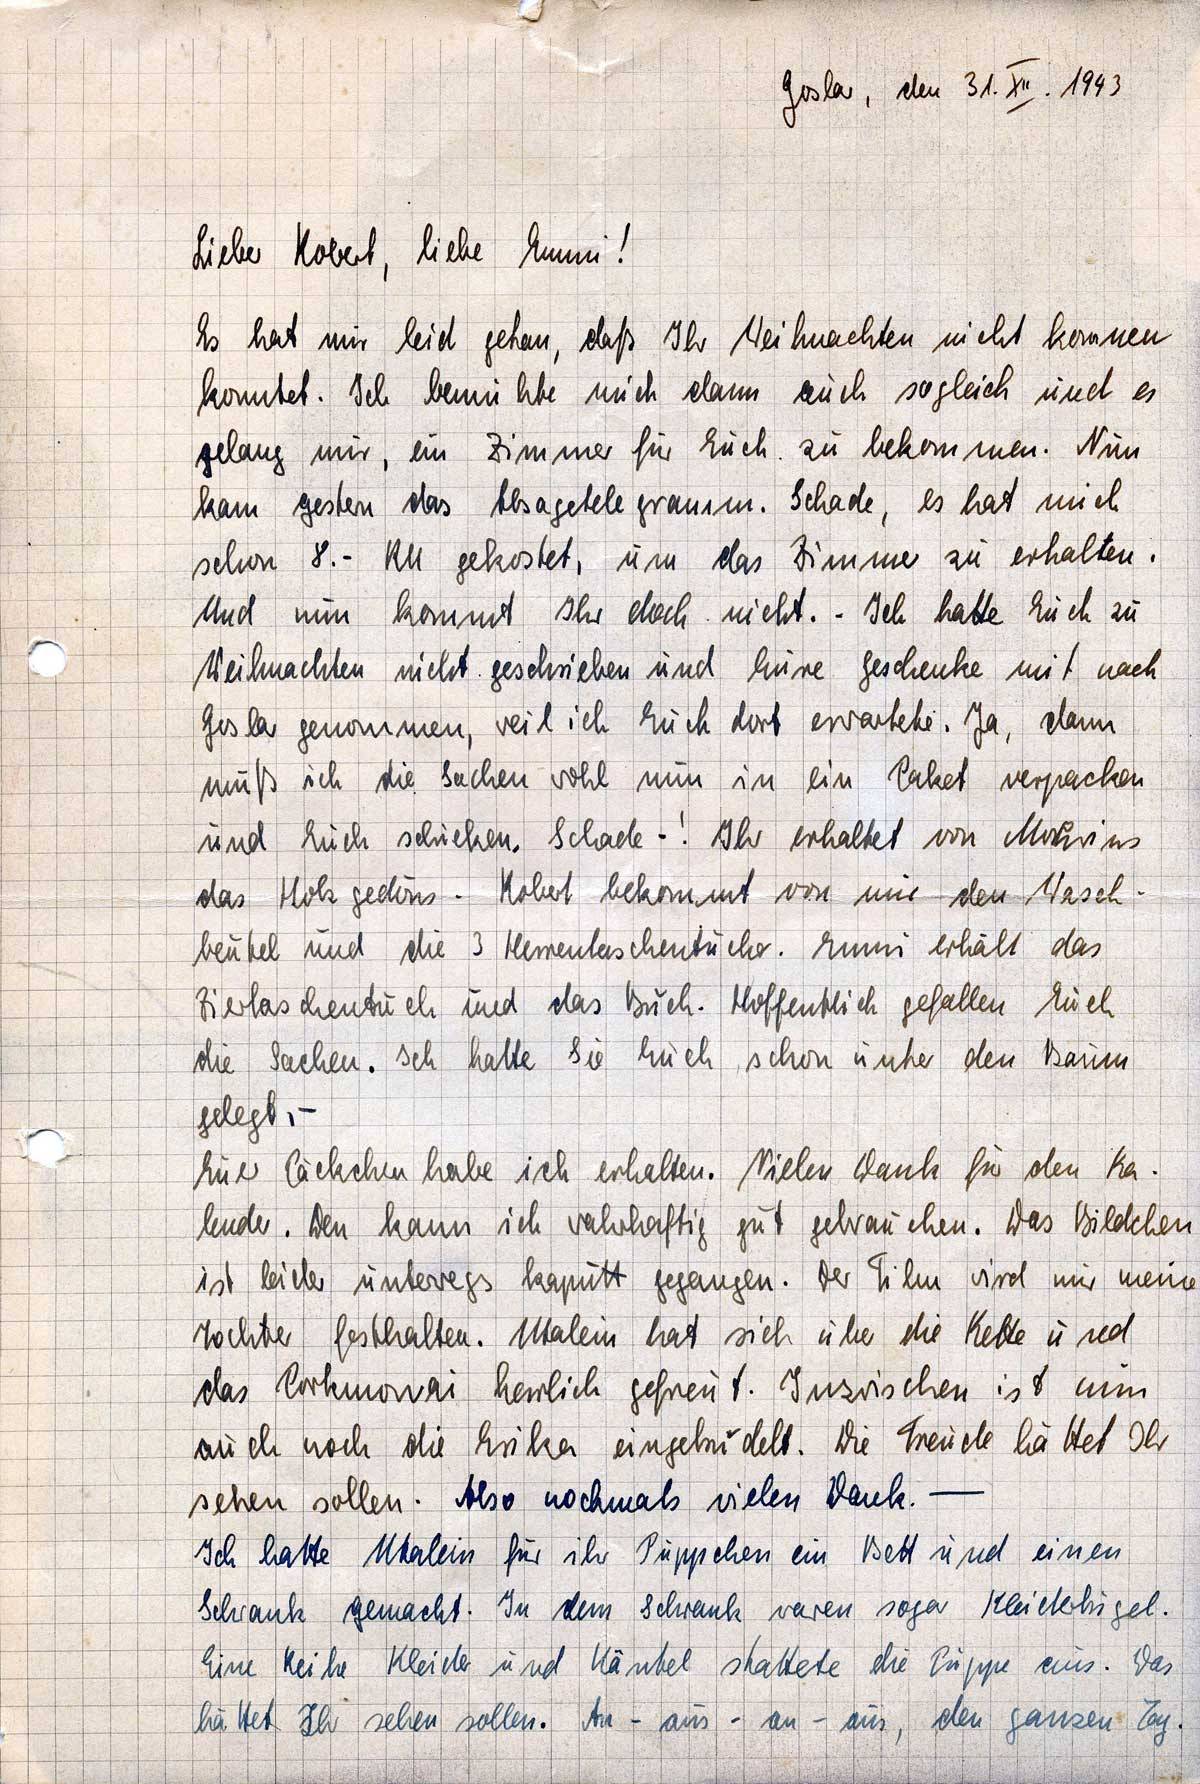 Goslar, den 31. XII. 1943
Lieber Robert, liebe Emmi!
Es hat mir leid getan, daß Ihr Weihnachten nicht kommen
konntet. Ich bemühte mich dann auch sogleich und es
gelang mir, ein Zimmer für Euch zu bekommen. Nun
kam gestern das Absagetelegramm. Schade, es hat mich
schon 8.- RM gekostet, um das Zimmer zu erhalten.
Und nun kommt Ihr doch nicht. - Ich hatte Euch zu
Weihnachten nicht geschrieben und Eure Geschenke mit nach
Goslar genommen, weil ich Euch dort erwartete. Ja, dann
muß ich die Sachen wohl nun in ein Paket verpacken
und Euch schicken. Schade -! Ihr erhaltet von
das Holzgedöns. Robert bekommt von mir den Wasch-
beutel und die 3 Herrentaschentücher. Emmi erhält das
Ziertaschentuch und das Buch. Hoffentlich gefallen Euch
die Sachen. Ich hatte Sie Euch schon unter den Baum
gelegt. -
Euer Päckchen habe ich erhalten. Vielen Dank für den Ka-
lender. Den kann ich wahrhaftig gut gebrauchen. Das Bildchen
ist leider unterwegs kaputt gegangen. Der Film wird mir meine
Tochter festhalten. Utalein hat sich über die Kette und
das Portmonnai herrlich gefreut. Inzwischen ist nun
auch noch die Erika eingetrudelt. Die Freude hättet Ihr
sehen sollen. Also nochmals vielen Dank. —
Ich hatte Utalein für ihr Püppchen ein Bett und einen
Schrank gemacht. In dem Schrank waren sogar Kleiderbügel.
Eine Reihe Kleider und Mäntel stattete die Puppe aus. Das
hättet Ihr sehen sollen. An - aus - an - aus, den ganzen Tag.